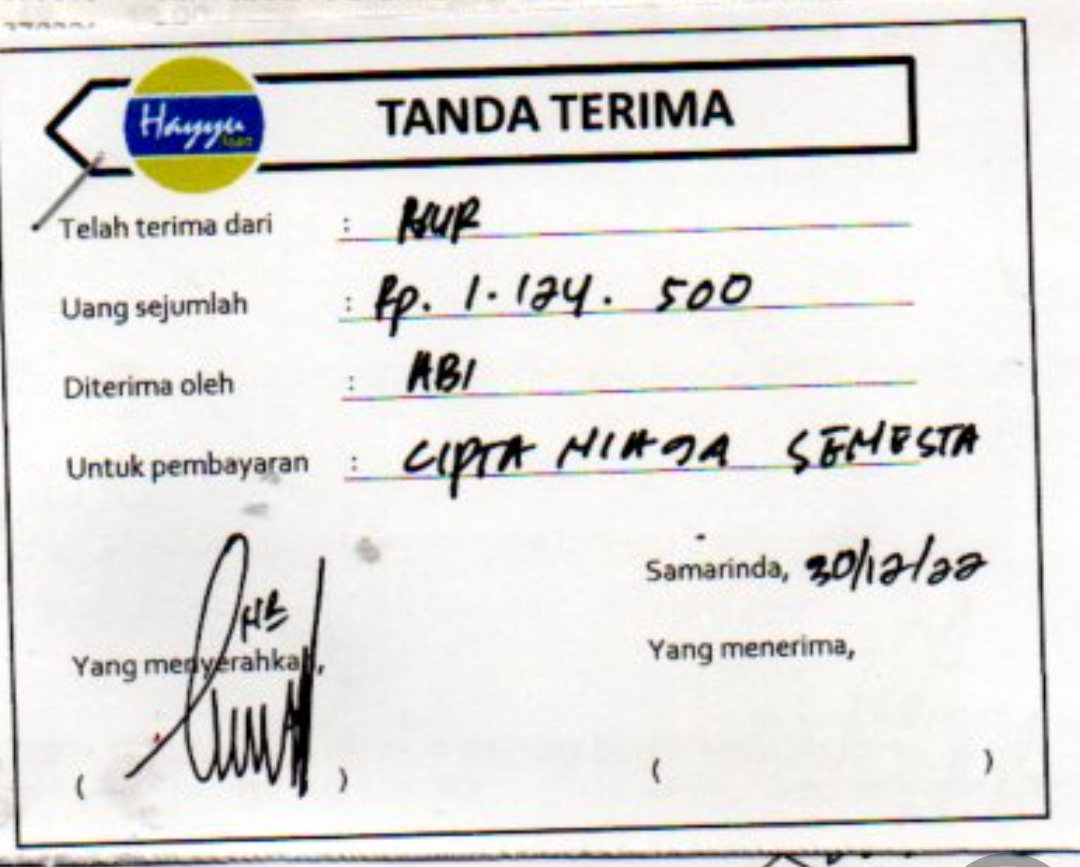 Hayyu
TANDA TERIMA
Telah terima dari : NUR
Uang sejumlah : Rp. 1.124. 500
Diterima oleh : ABI
Untuk pembayaran : CIPTA NIAGA SEMESTA
Samarinda, 30/12/22
Yang menyerahkan,
Yang menerima,
( )
( )